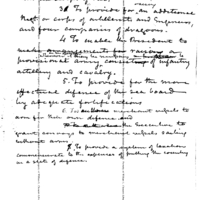 3d To provide for an additional
Regt or corps of artillerists and engineers,
and four companies of dragoons.
4 To make
provisional army consisting of infantry
artillery and cavalry.
5. To provide for the more
effectual defence of the sea board
by adequate fortifications
6. To authorize merchant vessels to
arm for their own defence and
the Executive to
grant convoys to merchant vessels sailing
without arms
7. To provide a system of taxation
commensurate to the expenses of putting the country
in a state of defence.